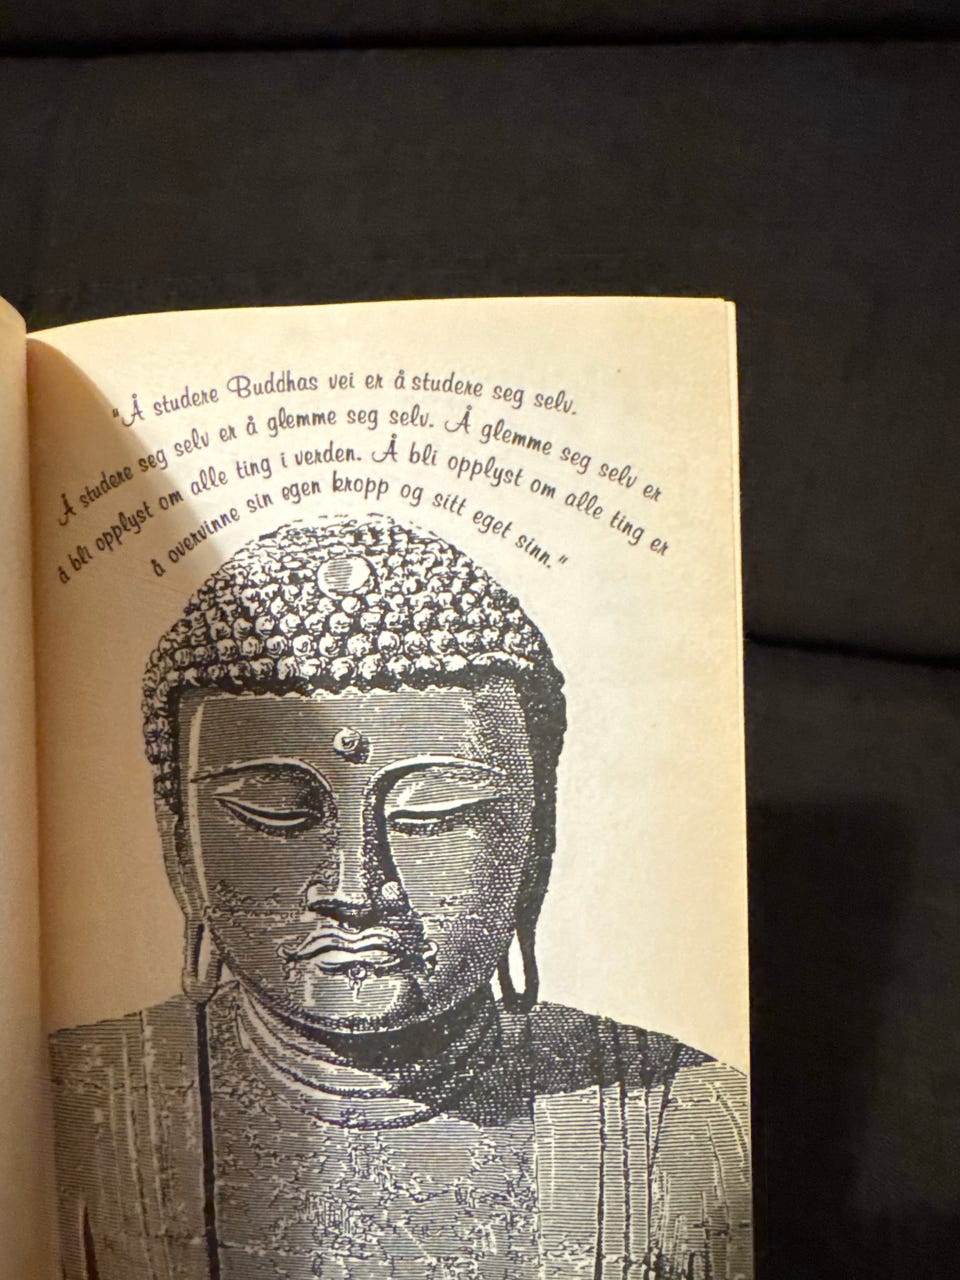 "Å studere Buddhas vei er å studere seg selv.
Å studere seg selv er å glemme seg selv. Å glemme seg selv er
å bli opplyst om alle ting i verden. Å bli opplyst om alle ting er
å overvinne sin egen kropp og sitt eget sinn."